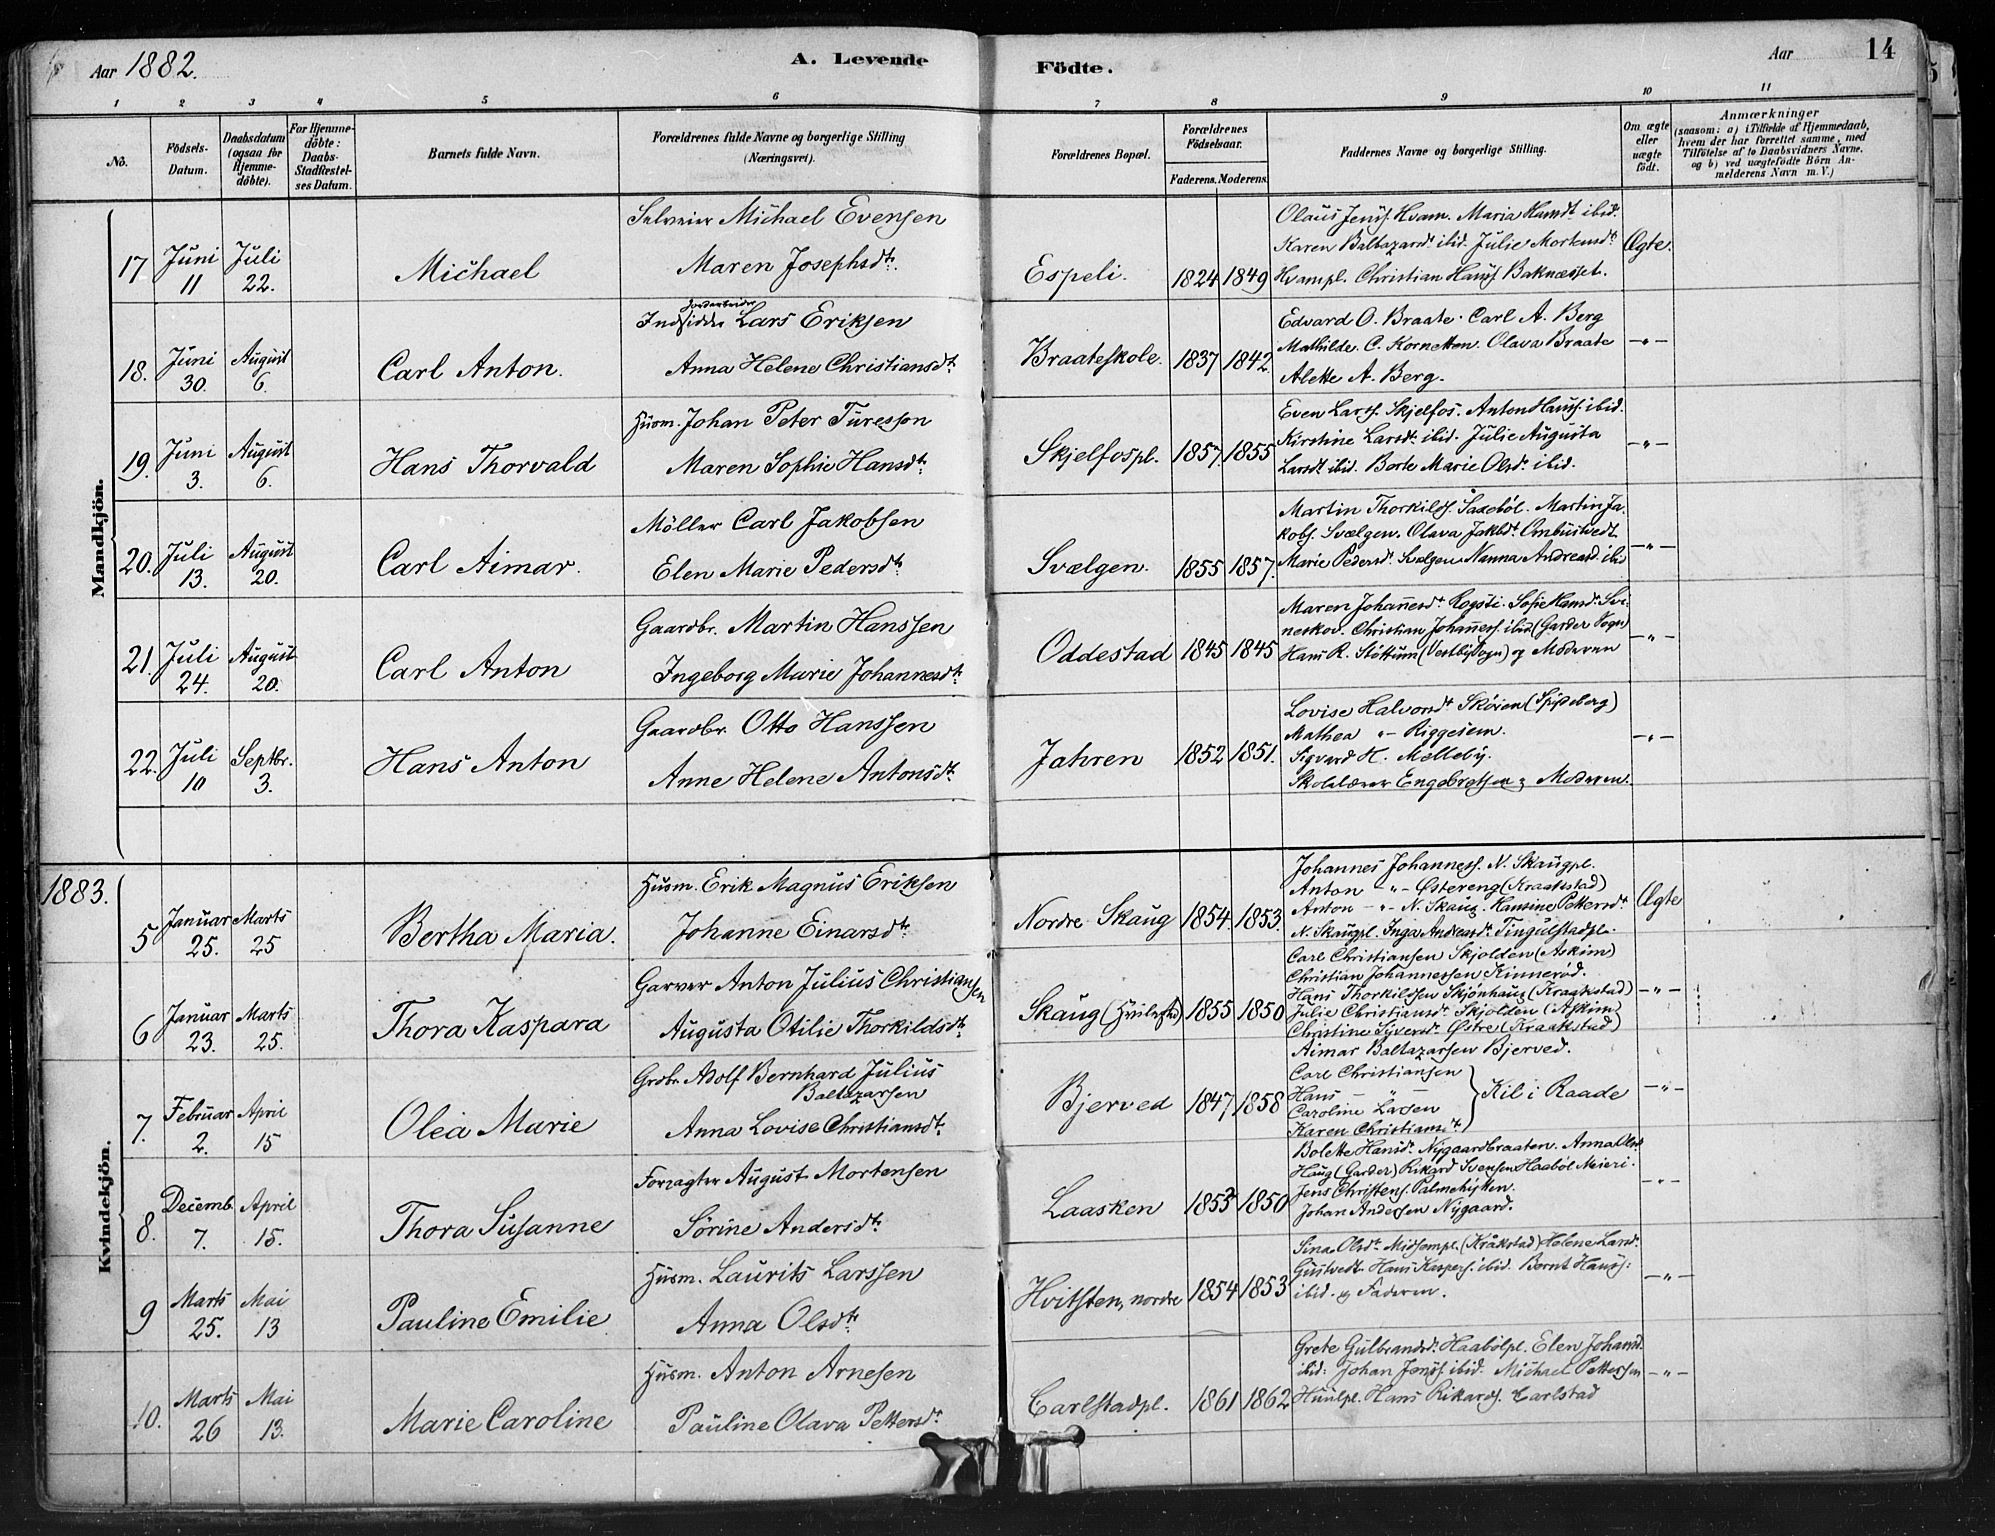 Aar 1882.
A. Levende Födte.
Aar
14
1 2 3 4 5 6 7 8 9 10 11
No.
Födsels-Datum.
Daabsdatum (ogsaa for Hjemmedöbte).
For Hjemmedöbte: Daabs-Stadfæstelses Datum.
Barnets fulde Navn.
Forældrenes fulde Navne og borgerlige Stilling (Næringsvei).
Forældrenes Bopæl.
Forældrenes Födselsaar.
Faderens. Moderens.
Faddernes Navne og borgerlige Stilling.
Om ægte eller uægte födt.
Anmærkninger
(saasom: a) i Tilfælde af Hjemmedaab, hvem der har forrettet samme, med Tilföielse af to Daabsvidners Navne, og b) ved uægtefödte Börn Anmelderens Navn m. V.)
Mandkjön.
17 Juni 11 Juli 22. Michael
Selveier Michael Evensen
Maren Josephsdtr.
Espeli. 1824 1849
Olaus Jenss. Hvam. Maria Hansdt. ibid.
Karen Baltazarsdt. ibid. Julie Mortensdt.
Hvampl. Christian Hanss. Baknæsset.
Ægte.
18. Juni 30. August 6. Carl Anton.
Indsidder Jordarbeider Lars Eriksen
Anna Helene Christiansdtr.
Braateskole. 1837 1842.
Edvard O. Braate. Carl A. Berg
Mathilde C. Kornetten. Olava Braate
Alette A. Berg.
—„—
19. Juni 3. August 6. Hans Thorvald
Husm. Johan Peter Turesson
Maren Sophie Hansdtr.
Skjelfospl. 1857. 1855
Even Larss. Skjelfos. Anton Hanss. ibid.
Kirstine Larsdt. ibid. Julie Augusta
Larsdt. ibid. Berte Marie Olsdt. ibid.
—„—
20. Juli 13. August 20. Carl Aimar.
Möller Carl Jakobsen
Elen Marie Pedersdtr.
Svælgen. 1855 1857.
Martin Thorkilds. Saxebøl. Martin Ja-
kobs. Svælgen. Olava Jakbdt. Ombustvedt
Marie Pedersdt. Svælgen Nanna Andreasd. ibid
—„—
21. Juli 24. August 20. Carl Anton
Gaardbr. Martin Hanssen
Ingeborg Marie Johannesdtr.
Oddestad 1845 1845
Maren Johannesdt. Rogsti. Sofie Hansdt. Svi-
neskov. Christian Johanness. ibid (Garder Sogn)
Hans R. Støttum (Vestby Sogn) og Moderen
—„—
22. Juli 10 Septbr. 3. Hans Anton
Gaardbr. Otto Hanssen
Anne Helene Antonsdtr.
Jahren 1852 1851.
Lovise Halvorsdt. Skøien (Spydeberg)
Mathea —„— Riggesiem.
Sigvard H. Melleby.
Skolelærer Engebretsen og Moderen.
—„—
1883.
Kvindekjön.
5 Januar 25. Marts 25 Bertha Maria.
Husm. Erik Magnus Eriksen
Johanne Einarsdtr.
Nordre Skaug 1854. 1853.
Johannes Johanness. N. Skaugpl.
Anton —„— Østereng (Kraakstad)
Anton —„— N. Skaug. Hansine Pettersdt.
N. Skaugpl. Inga Andreasdt. Tingulstadpl.
Ægte
6 Januar 23. Marts 25. Thora Kaspara
Garver Anton Julius Christiansen
Augusta Otilie Thorkildsdtr.
Skaug 1855 1850
Carl Christiansen Skjolden (Askim)
Christian Johannessen Kinnerød.
Hans Thorkildsen Skjønhaug (Kraakstad)
Julie Christiansdt. Skjolden (Askim)
Christine Syversdt. Østre (Kraakstad)
—„—
7. Februar 2. April 15 Olea Marie
Grdbr. Adolf Bernhard Julius
Baltazarsen
Anna Lovise Christiansdtr.
Bjerved 1847 1858
Aimar Baltazarsen Bjerved.
Carl Christiansen
Hans —
Caroline Larsen
Karen Christiansdt.
Kil i Raade
—„—
8. Decemb. 7. April 15. Thora Susanne
Forpagter August Mortensen
Sörine Andersdtr.
Laasken 1853 1850
Bolette Hansdt. Nygaardbraaten. Anna Olsdt.
Haug (Garder) Rikard Svensen Haabøl Meieri.
Jens Christens. Palmehytten.
Johan Andersen Nygaard.
—„—
9 Marts 25. Mai 13 Pauline Emilie
Husm. Laurits Larssen
Anna Olsdtr.
Hvitsten, nordre 1854 1853
Sina Olsdt. Midsempl. (Kråkstad) Helene Larsd.
Gustvedt. Hans Kaspers. ibid. Bernt Hanss.
ibid. og Faderen.
—„—
10. Marts 26 Mai 13. Marie Caroline
Husm. Anton Arnesen
Pauline Olava Pettersdtr.
Carlstadpl. 1861 1862
Grete Gulbrandsd. Haabølpl. Elen Johansd.
ibid: Johan Jenss. ibid. Michael Pettersen
Huulpl. Hans Rikards. Carlstad
—„—